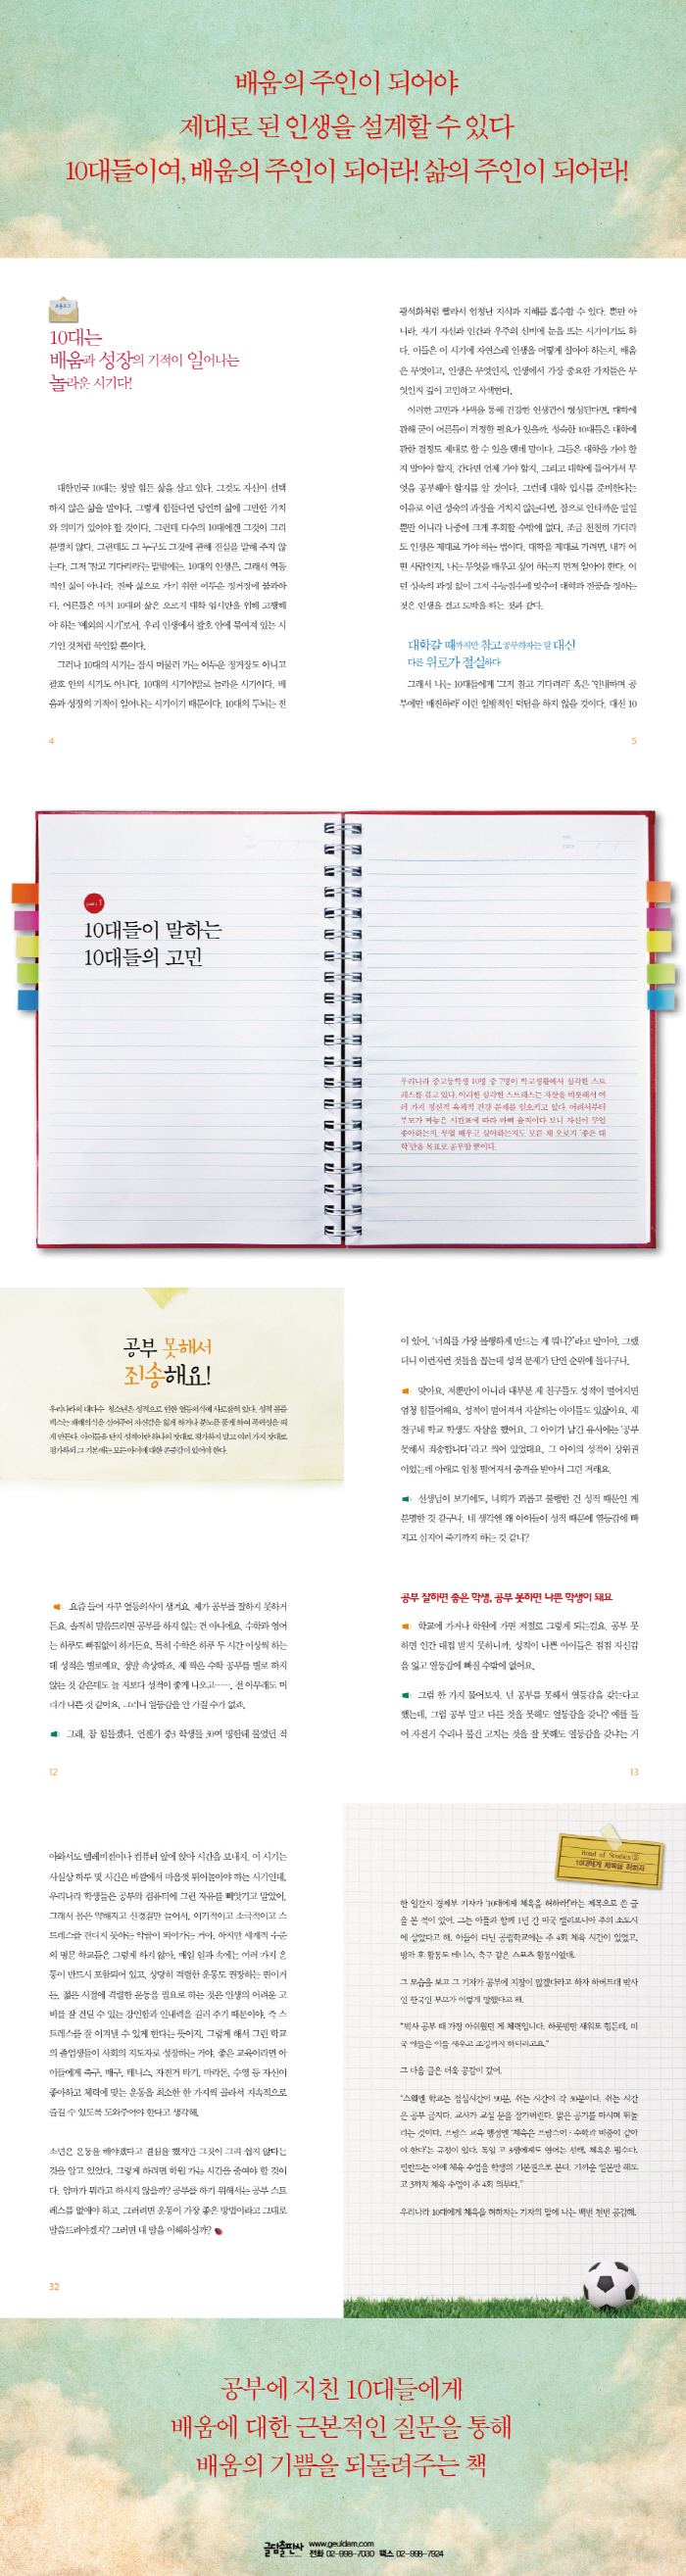 배움의 주인이 되어야
제대로 된 인생을 설계할 수 있다
10대들이여, 배움의 주인이 되어라! 삶의 주인이 되어라!
프롤로그
10대는
배움과 성장의 기적이 일어나는
놀라운 시기다!
대한민국 10대는 정말 힘든 삶을 살고 있다. 그것도 자신이 선택
하지 않은 삶을 말이다. 그렇게 힘들다면 당연히 삶에 그만한 가치
와 의미가 있어야 할 것이다. 그런데 다수의 10대에겐 그것이 그리
분명치 않다. 그런데도 그 누구도 그것에 관해 진실을 말해 주지 않
는다. 그저 '참고 기다리라'는 말밖에는. 10대의 인생은, 그래서 역동
적인 삶이 아니다. 진짜 삶으로 가기 위한 어두운 정거장에 불과하
다. 어른들은 마치 10대의 삶은 오로지 대학 입시만을 위해 고생해
야 하는 '예외의 시기'로서, 우리 인생에서 괄호 안에 묶여져 있는 시
기인 것처럼 묵인할 뿐이다.
그러나 10대의 시기는 잠시 머물러 가는 어두운 정거장도 아니고
괄호 안의 시기도 아니다. 10대의 시기야말로 놀라운 시기이다. 배
움과 성장의 기적이 일어나는 시기이기 때문이다. 10대의 두뇌는 전
4
광석화처럼 빨라서 엄청난 지식과 지혜를 흡수할 수 있다. 뿐만 아
니라, 자기 자신과 인간과 우주의 신비에 눈을 뜨는 시기이기도 하
다. 이들은 이 시기에 자연스레 인생을 어떻게 살아야 하는지, 배움
은 무엇이고, 인생은 무엇인지, 인생에서 가장 중요한 가치들은 무
엇인지 깊이 고민하고 사색한다.
이러한 고민과 사색을 통해 건강한 인생관이 형성된다면, 대학에
관해 굳이 어른들이 걱정할 필요가 있을까. 성숙한 10대들은 대학에
관한 결정도 제대로 할 수 있을 텐데 말이다. 그들은 대학을 가야 할
지 말아야 할지, 간다면 언제 가야 할지, 그리고 대학에 들어가서 무
엇을 공부해야 할지를 알 것이다. 그런데 대학 입시를 준비한다는
이유로 이런 성숙의 과정을 거치지 않는다면, 참으로 안타까운 일일
뿐만 아니라 나중에 크게 후회할 수밖에 없다. 조금 천천히 가더라
도 인생은 제대로 가야 하는 법이다. 대학을 제대로 가려면, 내가 어
떤 사람인지, 나는 무엇을 배우고 싶어 하는지 먼저 알아야 한다. 이
런 성숙의 과정 없이 그저 수능점수에 맞추어 대학과 전공을 정하는
것은 인생을 걸고 도박을 하는 것과 같다.
대학갈 때까지만 참고 공부하자는 말 대신
다른 위로가 절실하다
그래서 나는 10대들에게 '그저 참고 기다려라' 혹은 '인내하며 공
부에만 매진하라' 이런 일방적인 덕담을 하지 않을 것이다. 대신 10
5
part 1
10대들이 말하는
10대들의 고민
우리나라 중고등학생 10명 중 7명이 학교생활에서 심각한 스트
레스를 겪고 있다. 이러한 심각한 스트레스는 자살을 비롯해서 여
러 가지 정신적 육체적 건강 문제를 일으키고 있다. 어려서부터
부모가 짜놓은 시간표에 따라 바삐 움직이다 보니 자신이 무얼
좋아하는지, 무얼 배우고 싶어하는지도 모른 채 오로지 '좋은 대
학'만을 목표로 공부할 뿐이다.
공부 못해서
죄송해요!
우리나라의 대다수 청소년은 성적으로 인한 열등의식에 사로잡혀 있다. 성적 콤플
렉스는 패배의식을 심어주어 자신감을 잃게 하거나 분노를 품게 하여 폭력성을 띠
게 만든다. 아이들을 단지 성적이란 하나의 잣대로 평가하지 말고 여러 가지 잣대로
평가하되 그 기본에는 모든 아이에 대한 존중감이 있어야 한다.
요즘 들어 자꾸 열등의식이 생겨요. 제가 공부를 잘하지 못하거
든요. 솔직히 말씀드리면 공부를 하지 않는 건 아니에요. 수학과 영어
는 하루도 빠짐없이 하거든요. 특히 수학은 하루 두 시간 이상씩 하는
데 성적은 별로예요. 정말 속상하죠. 제 짝은 수학 공부를 별로 하지
않는 것 같은데도 늘 저보다 성적이 좋게 나오고……. 전 아무래도 머
리가 나쁜 것 같아요. 그러니 열등감을 안 가질 수가 없죠.
그래, 참 힘들겠다. 언젠가 중3 학생들 30여 명한테 물었던 적
12
이 있어. '너희를 가장 불행하게 만드는 게 뭐니?'라고 말이야. 그랬
더니 이런저런 것들을 꼽는데 성적 문제가 단연 순위에 들더구나.
맞아요. 저뿐만이 아니라 대부분 제 친구들도 성적이 떨어지면
엄청 힘들어해요. 성적이 떨어져서 자살하는 아이들도 있잖아요. 제
친구네 학교 학생도 자살을 했어요. 그 아이가 남긴 유서에는 '공부
못해서 죄송합니다'라고 씌어 있었대요. 그 아이의 성적이 상위권
이었는데 아래로 엄청 떨어져서 충격을 받아서 그런 거래요.
선생님이 보기에도, 너희가 괴롭고 불행한 건 성적 때문인 게
분명한 것 같구나. 네 생각엔 왜 아이들이 성적 때문에 열등감에 빠
지고 심지어 죽기까지 하는 것 같니?
공부 잘하면 좋은 학생, 공부 못하면 나쁜 학생이 돼요
학교에 가거나 학원에 가면 저절로 그렇게 되는걸요. 공부 못
하면 인간 대접 받지 못하니까. 성적이 나쁜 아이들은 점점 자신감
을 잃고 열등감에 빠질 수밖에 없어요.
그럼 한 가지 물어보자. 넌 공부를 못해서 열등감을 갖는다고
했는데, 그럼 공부 말고 다른 것을 못해도 열등감을 갖니? 예를 들
어 자전거 수리나 물건 고치는 것을 잘 못해도 열등감을 갖냐는 거
13
아와서도 텔레비전이나 컴퓨터 앞에 앉아 시간을 보내지. 이 시기는
사실상 하루 몇 시간은 바깥에서 마음껏 뛰어놀아야 하는 시기인데,
우리나라 학생들은 공부와 컴퓨터에 그런 자유를 빼앗기고 말았어.
그래서 몸은 약해지고 신경질만 늘어서, 이기적이고 소극적이고 스
트레스를 견디지 못하는 약골이 되어가는 거야. 하지만 세계적 수준
의 명문 학교들은 그렇게 하지 않아. 매일 일과 속에는 여러 가지 운
동이 반드시 포함되어 있고, 상당히 격렬한 운동도 권장하는 편이거
든. 젊은 시절에 격렬한 운동을 필요로 하는 것은 인생의 어려운 고
비를 잘 견딜 수 있는 강인함과 인내력을 길러 주기 때문이야. 즉 스
트레스를 잘 이겨낼 수 있게 한다는 뜻이지. 그렇게 해서 그런 학교
의 졸업생들이 사회의 지도자로 성장하는 거야. 좋은 교육이라면 아
이들에게 축구, 배구, 테니스, 자전거 타기, 마라톤, 수영 등 자신이
좋아하고 체력에 맞는 운동을 최소한 한 가지씩 골라서 지속적으로
즐길 수 있도록 도와주어야 한다고 생각해.
소년은 운동을 해야겠다고 결심을 했지만 그것이 그리 쉽지 않다는
것을 알고 있었다. 그렇게 하려면 학원 가는 시간을 줄여야 할 것이
다. 엄마가 뭐라고 하시지 않을까? 공부를 하기 위해서는 공부 스트
레스를 없애야 하고, 그러려면 운동이 가장 좋은 방법이라고 그대로
말씀드려야겠지? 그러면 내 말을 이해하실까?
32
Road of Studies ②
10대에게 체육을 허하라
한 일간지 경제부 기자가 '10대에게 체육을 허하라!'라는 제목으로 쓴 글
을 본 적이 있어. 그는 아들과 함께 1년 간 미국 캘리포니아 주의 소도시
에 살았다고 해. 아들이 다닌 공립학교에는 주 4회 체육 시간이 있었고,
방과 후 활동도 테니스, 축구 같은 스포츠 활동이었대.
그 모습을 보고 그 기자가 공부에 지장이 많겠다라고 하자 하버드대 박사
인 한국인 부모가 이렇게 말했다고 해.
"박사 공부 때 가장 아쉬웠던 게 체력입니다. 하룻밤만 새워도 힘든데, 미
국 애들은 이틀 새우고 조깅까지 하더라고요."
그 다음 글은 더욱 공감이 갔어.
"스웨덴 학교는 점심시간이 90분, 쉬는 시간이 각 30분이다. 쉬는 시간
은 공부 금지다. 교사가 교실 문을 잠가버린다. 맑은 공기를 마시며 뛰놀
라는 것이다. 프랑스 교육 행정엔 '체육은 프랑스어·수학과 비중이 같아
야 한다'는 규정이 있다. 독일 고 3생에게도 영어는 선택, 체육은 필수다.
핀란드는 아예 체육 수업을 학생의 기본권으로 본다. 가까운 일본만 해도
고 3까지 체육 수업이 주 4회 의무다."
우리나라 10대에게 체육을 허하자는 기자의 말에 나는 백번 천번 공감해.
공부에 지친 10대들에게
배움에 대한 근본적인 질문을 통해
배움의 기쁨을 되돌려주는 책
글담출판사 www.geuldam.com
전화 02-998-7030 팩스 02-998-7924